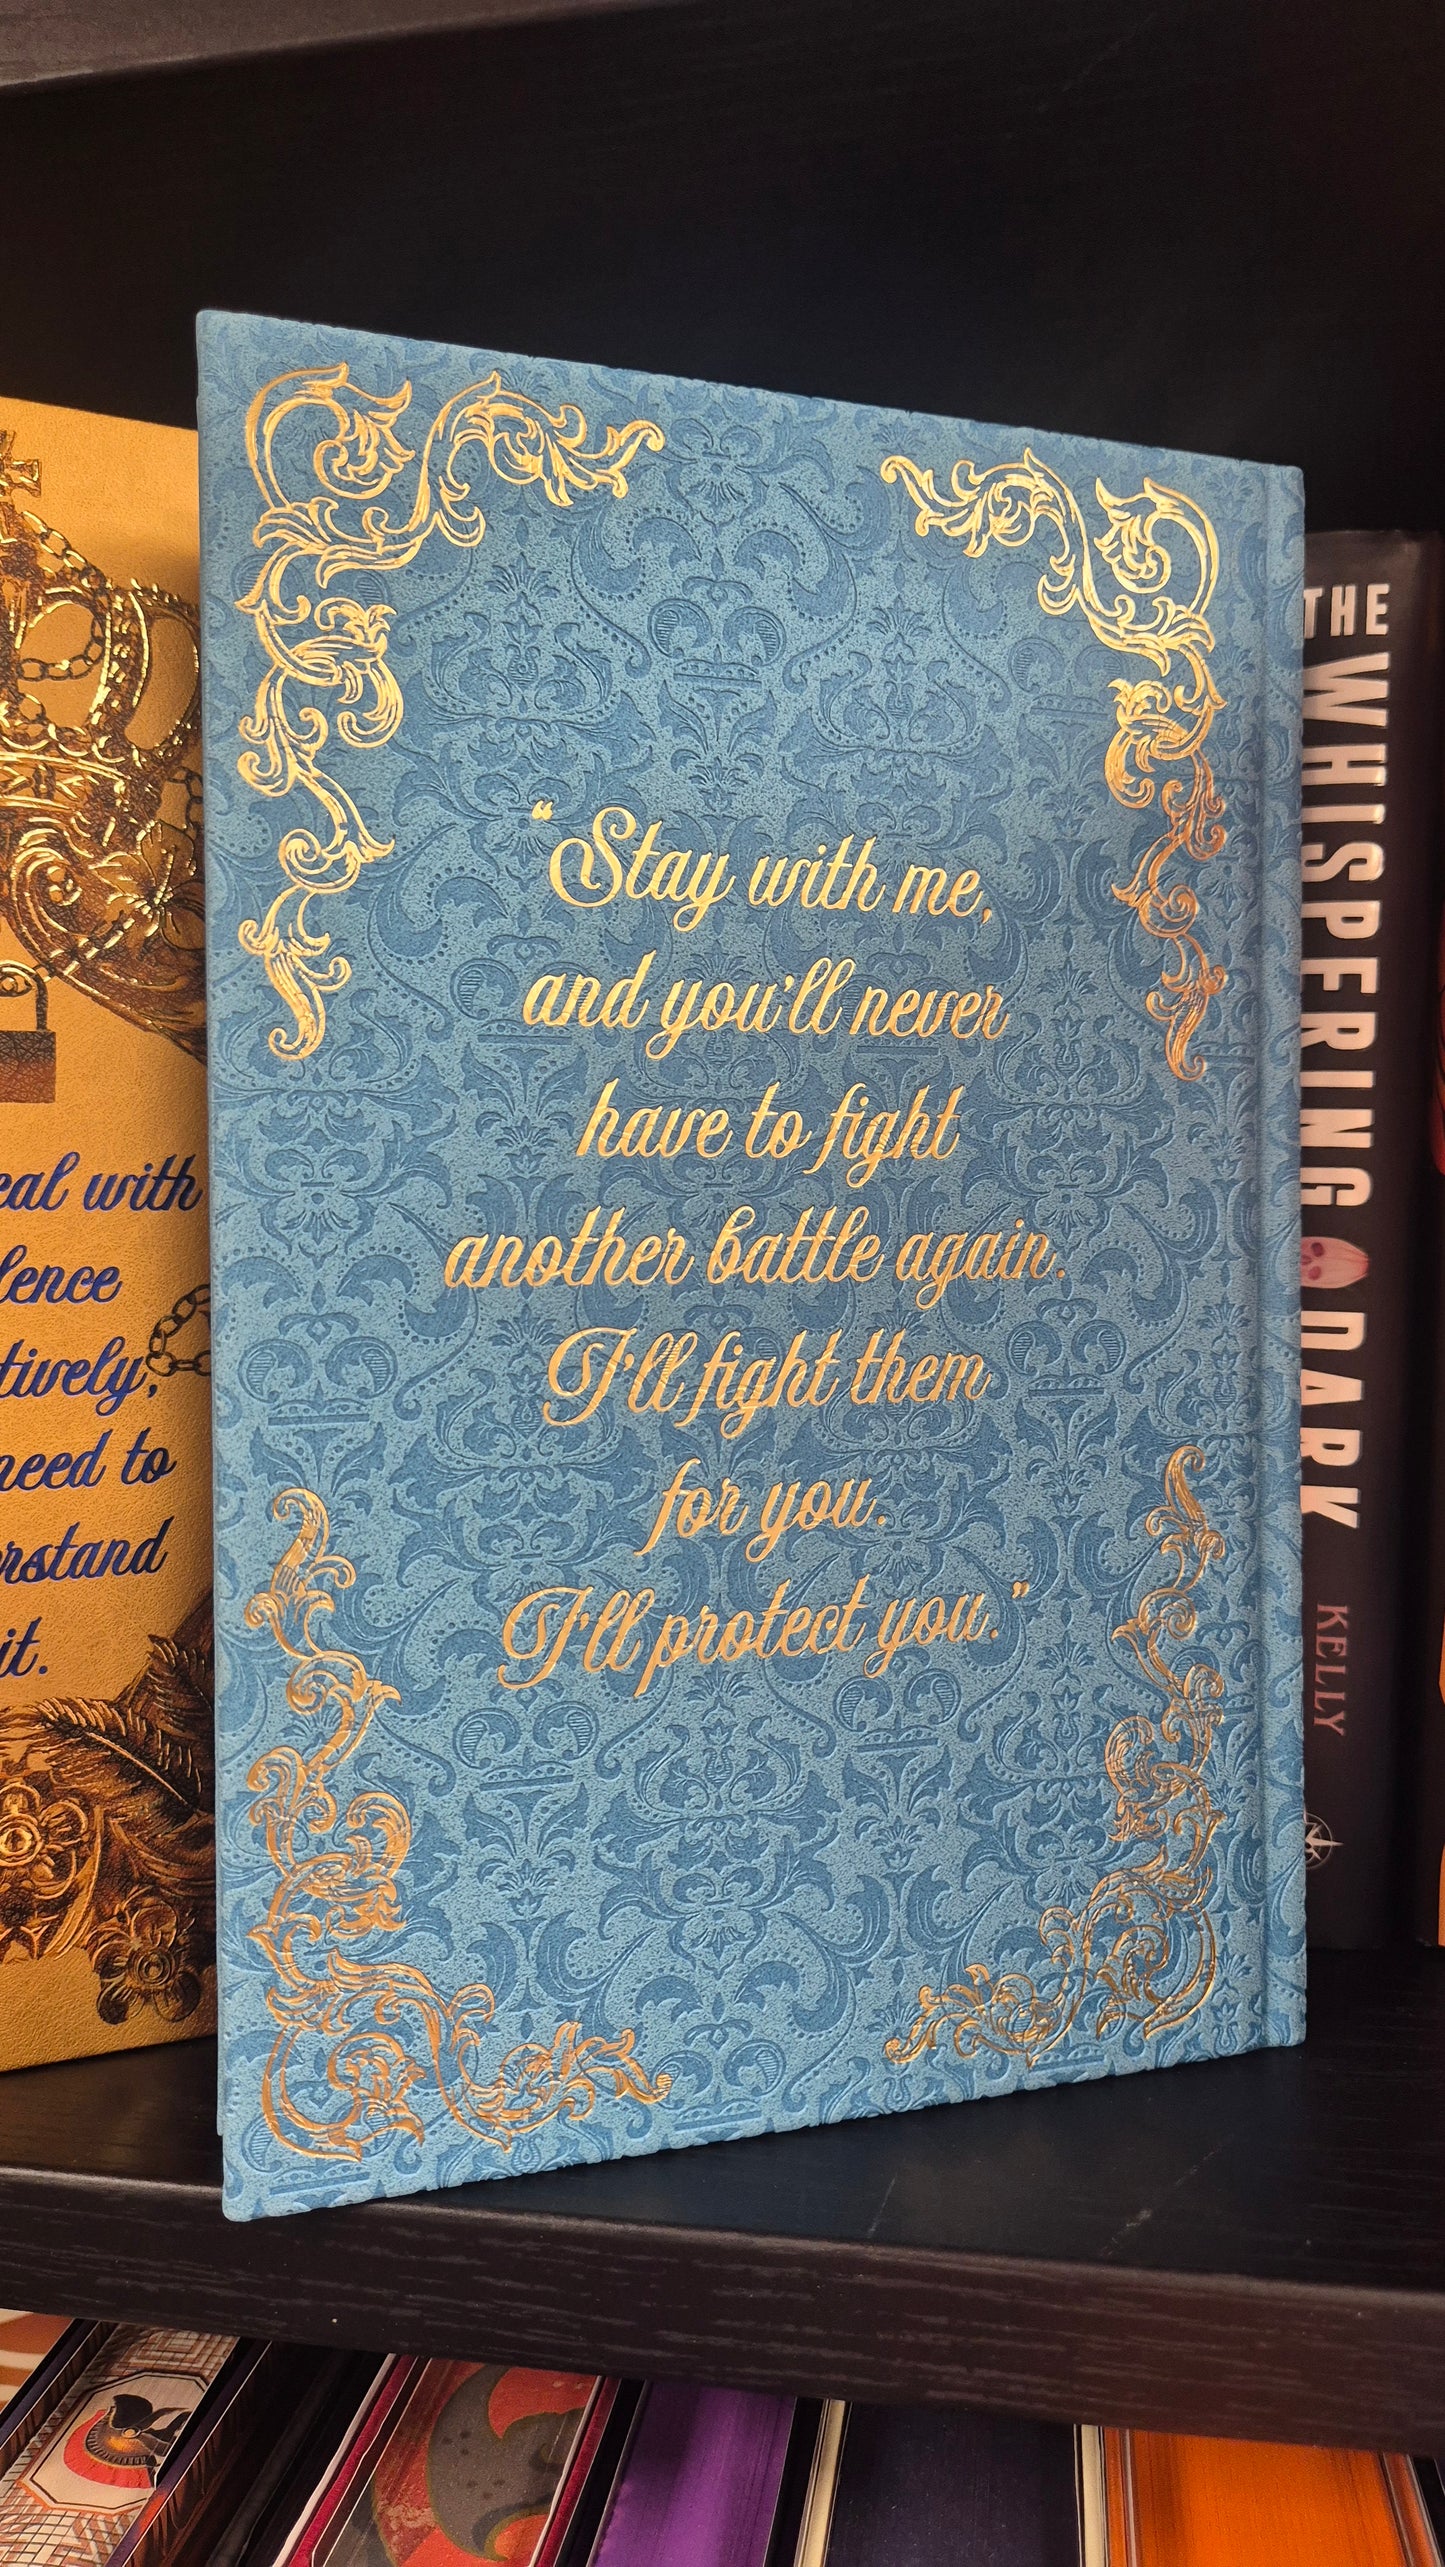 “Stay with me,
and you'll never
have to fight
another battle again.
I'll fight them
for you.
I'll protect you.”
eal with
lence
tively,
need to
rstand
it.
THE WHISPERING DARK
KELLY